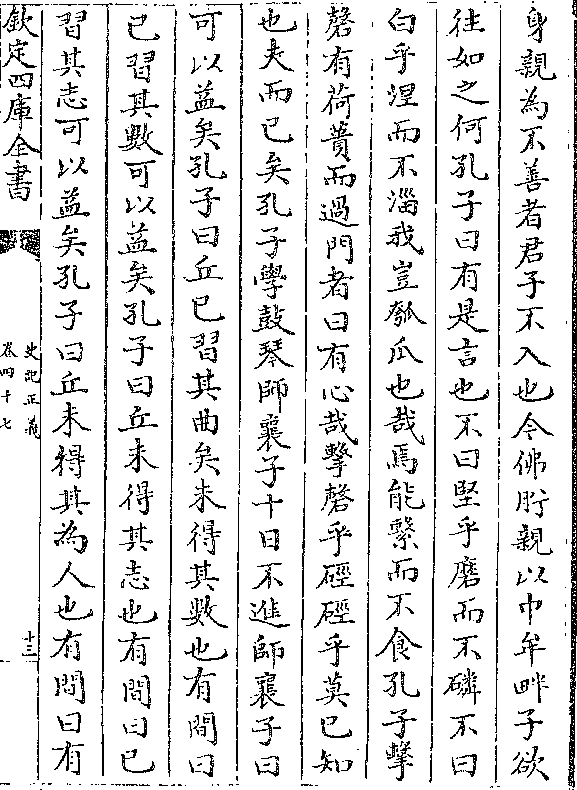 身親為不善者君子不入也今佛肸親以中牟畔子欲
往如之何孔子曰有是言也不曰堅乎磨而不磷不曰
白乎涅而不淄我豈匏瓜也哉焉能繫而不食孔子擊
磬有荷蕢而過門者曰有心哉擊磬乎硜硜乎莫已知
也夫而已矣孔子學鼓琴師襄子十日不進師襄子曰
可以益矣孔子曰丘已習其曲矣未得其數也有間曰
已習其數可以益矣孔子曰丘未得其志也有間曰已
習其志可以益矣孔子曰丘未得其為人也有間曰有
欽定四庫全書
史記正義
卷四十七
十三